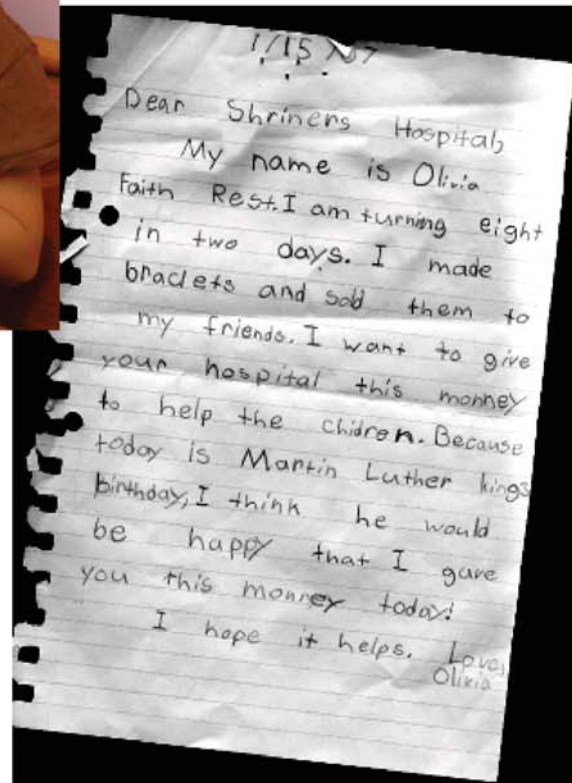 1/15/07
Dear Shriners Hospital,
My name is Olivia
Faith Rest. I am turning eight
in two days. I made
braclets and sold them to
my friends. I want to give
your hospital this monney
to help the chidren. Because
today is Martin Luther kings
birthday, I think he would
be happy that I gave
you this monney today!
I hope it helps. Love,
Olivia